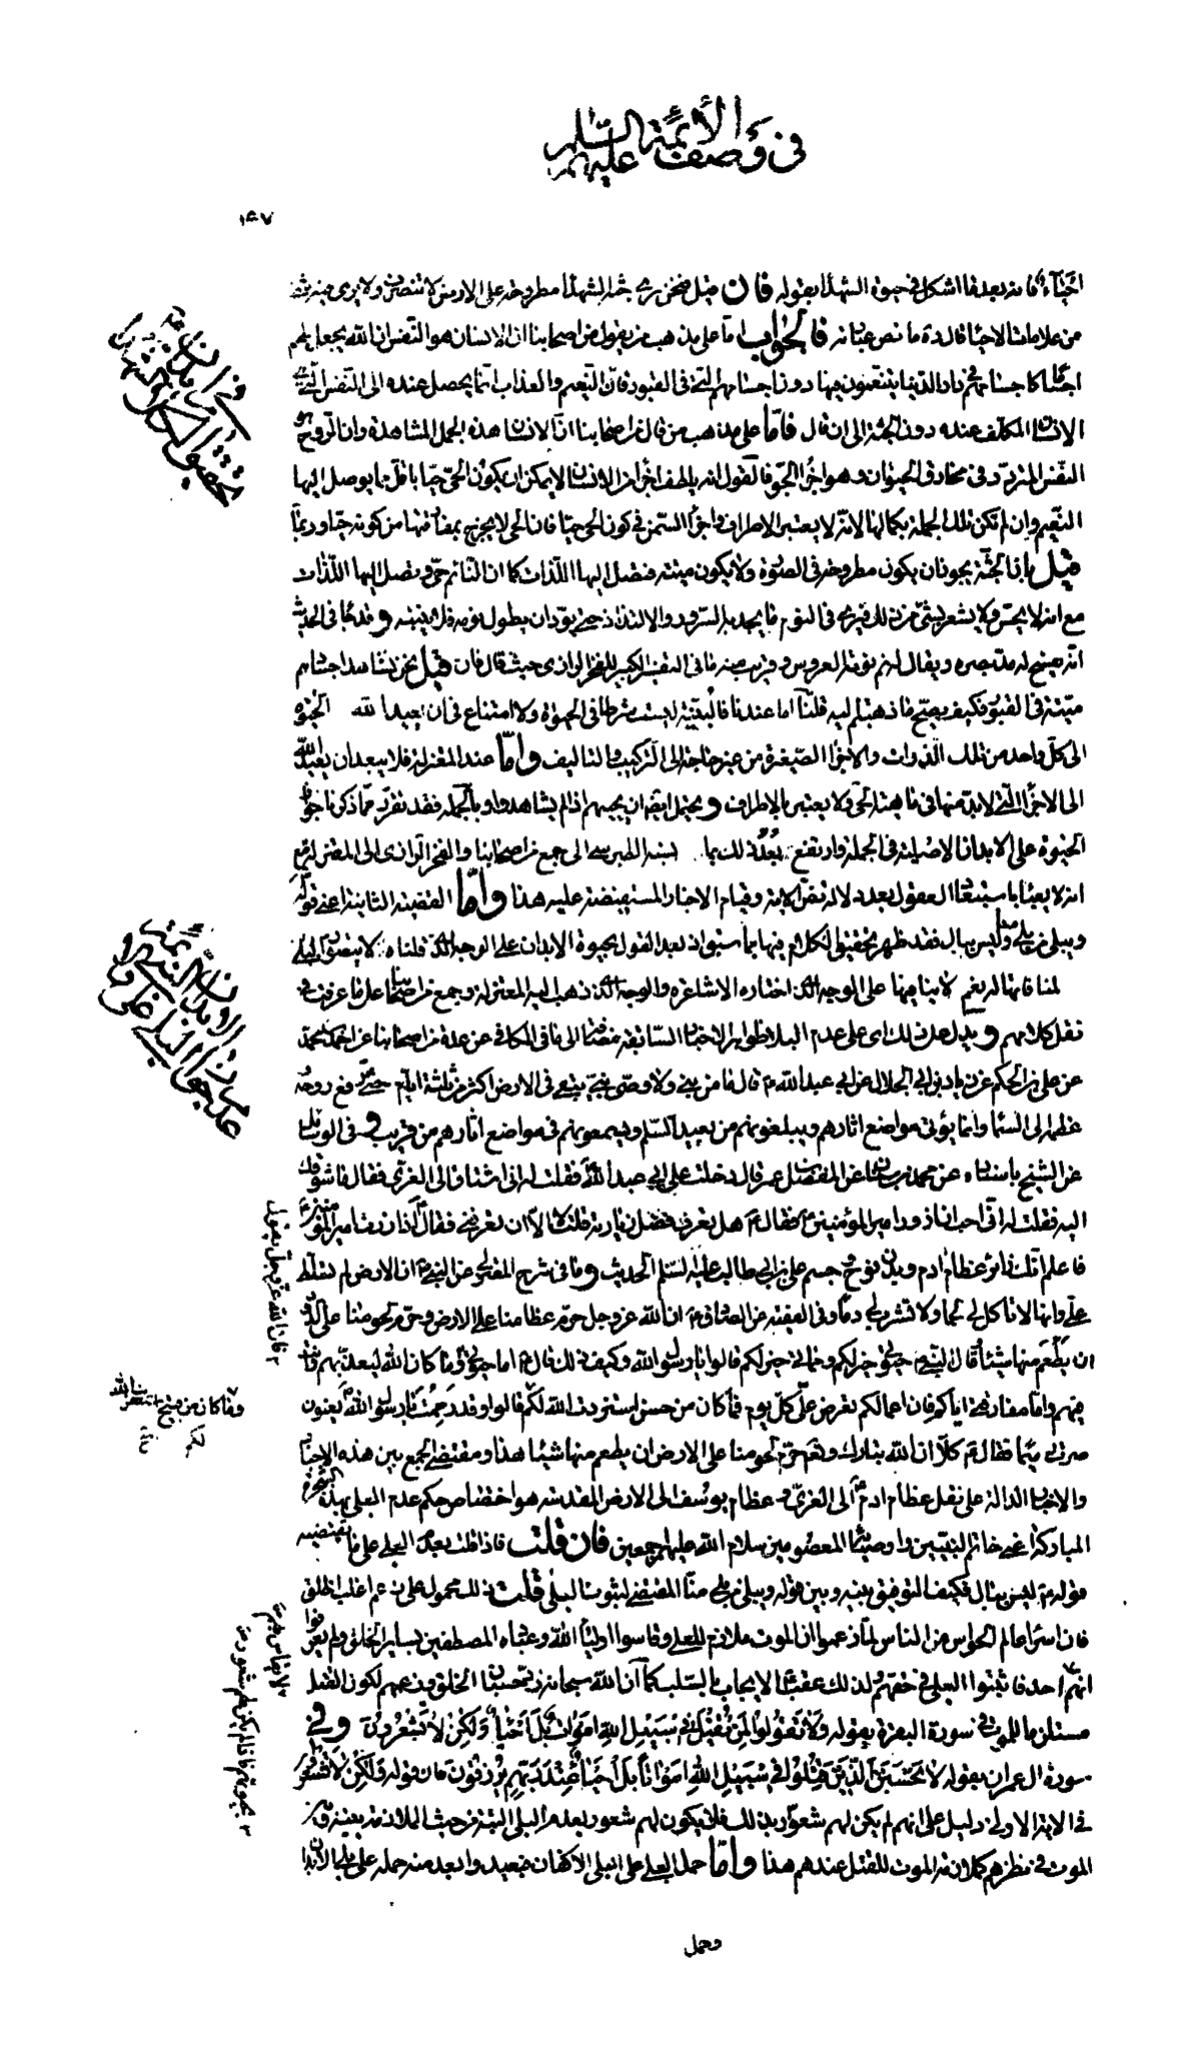 في وصف الأئمة عليهم السلام
١٤٧
أحياء فانه بعد ما اشكل في حيوة الشهداء بقوله فان قيل فنحن نرى جثث الشهداء مطروحة على الارض لا تتصرف ولا يرى فيها شيء
من علامات الاحياء قال ره ما نص عبارته فالجواب اما على مذهب من يقول من اصحابنا ان الانسان هو النفس ان الله يجعل لهم
اجساما كاجسامهم في دار الدنيا يتنعمون فيها دون اجسامهم التي في القبور فان النعيم والعذاب انما يحصل عنده الى النفس التي هي
الانسان المكلف عنده دون الجثة الى ان قال فاما على مذهب من قال من اصحابنا ان الانسان هذه الجمل المشاهدة وان الروح هو
النفس المتردد في مخارق الحيوان وهو اجزاء الجو فالقول انه يلطف اجزاء من الانسان لا يمكن ان يكون الحي حيا باقل منها يوصل اليها
النعيم وان لم تكن تلك الجملة بكمالها لانه لا يعتبر الاطراف واجزاء السمن في كون الحي حيا فان الحي لا يخرج بمفارقتها من كونه حيا وربما
قيل بان الجثة يجوز ان يكون مطروحة في الصورة ولا يكون ميتة فتصل اليها اللذات كما ان النائم حي وتصل اليها اللذات
مع انه لا يحس ولا يشعر بشيء من ذلك فيرى في النوم ما يجد به السرور والالتذاذ حتى يود ان يطول نومه فلا ينتبه وقد جاء في الحديث
انه يفسح له مد بصره ويقال له نم نومة العروس وقريب منه ما في التفسير الكبير للفخر الرازي حيث قال فان قيل نحن نشاهد اجسادهم
ميتة في القبور فكيف يصح ما ذهبتم اليه قلنا اما عندنا فالبنية ليست شرطا في الحيوة ولا امتناع في ان يعيد الله الحيوة
الى كل واحد من تلك الذرات والاجزاء الصغيرة من غير حاجة الى التركيب والتاليف واما عند المعتزلة فلا يبعد ان يعيد الله
الى الاجزاء التي لا بد منها في ماهية الحي ولا يعتبر بالاطراف ويحتمل ايضا ان يحييهم اذا لم يشاهدوا وبالجملة فقد تقرر مما ذكرنا جواز
الحيوة على الابدان الاصلية في الجملة وارتفع بعد ذلك بما نسبه الطبرسي الى جمع من اصحابنا والفخر الرازي الى المعتزلة مع
انه لا يعبأ باستبعاد العقول بعد دلالة نص الآية وقيام الاخبار المستفيضة عليه هذا واما القضية الثانية اعني قوله
ويبلى من بلى منا وليس ببال فقد ظهر تحقيق الكلام فيها بما سبق اذ بعد القول بحيوة الابدان على الوجه الذي قلناه لا يبقى
لمنافاتها له نعم لا ينافيها على الوجه الذي اختاره الاشاعرة والوجه الذي ذهب اليه المعتزلة وجمع من اصحابنا على ما عرفت في
نقل كلامهم ويدل على ذلك اي على عدم البلاء ظواهر الاخبار السابقة مضافا الى ما في الكافي عن عدة من اصحابنا عن احمد بن محمد
عن علي بن الحكم عن زياد بن ابي الحلال عن ابي عبد الله ع قال ما من نبي ولا وصي نبي يبقى في الارض اكثر من ثلثة ايام حتى ترفع روحه
عظمه الى السماء وانما يؤتى مواضع اثارهم ويبلغونهم من بعيد السلم ويسمعونهم في مواضع اثارهم من قريب وفي الوسائل
عن الشيخ باسناده عن محمد بن سنان عن المفضل بن عمر قال دخلت على ابي عبد الله ع فقلت له اني اشتاق الى الغري فقال فما شوقك
اليه فقلت له اني احب ان ازور امير المؤمنين ع فقال ع هل تعرف فضل زيارته قلت لا الا ان تعرفني فقال ع اذا زرت امير المؤمنين
فاعلم انك زائر عظام ادم وبدن نوح وجسم علي بن ابي طالب عليه السلم الحديث وما في شرح المعتزلي عن النبي ص ان الارض لم تسلط
علي وانها لا تاكل لي لحما ولا تشرب لي دما وفي الفقيه عن الصادق ع ان الله عز وجل حرم عظامنا على الارض وحرم لحومنا على الدود
ان يطعم منها شيئا قال النبي ص حيوتي خير لكم ومماتي خير لكم قالوا يا رسول الله وكيف ذلك قال ص اما حيوتي وما كان الله ليعذبهم وانت
فيهم واما مفارقتي اياكم فان اعمالكم تعرض علي كل يوم فما كان من حسن استزدت الله لكم قالوا وقد رممت يا رسول الله يعنون
صرت رميما فقال ص كلا ان الله تبارك وتعالى حرم لحومنا على الارض ان يطعم منها شيئا هذا ومقتضى الجمع بين هذه الاخبار
والاخبار الدالة على نقل عظام ادم ع الى الغري وعظام يوسف الى الارض المقدسة هو اختصاص حكم عدم البلى بهذه الشجرة
المباركة اعني خاتم النبيين واوصيائه المعصومين سلام الله عليهم اجمعين فان قلت فاذا قلت بعدم البلى على ما يقتضيه
قوله ع ليس ببال فكيف التوفيق بينه وبين قوله ويبلى من بلى منا المقتضى لثبوت البلى قلت ذلك محمول على زعم اغلب الخلق
فان اسراء عالم الحواس من الناس لما زعموا ان الموت ملازم للبلى وقاسوا اولياء الله وعباده المصطفين بساير الخلق ولم يعرفوا
انهم احد فاثبتوا البلى في حقهم ولذلك عقب ع الايجاب بالسلب كما ان الله سبحانه رد حسبان الخلق وزعمهم لكون القتل
مستلزما للموت في سورة البقرة بقوله ولا تقولوا لمن يقتل في سبيل الله اموات بل احياء ولكن لا تشعرون وفي
سورة ال عمران بقوله لا تحسبن الذين قتلوا في سبيل الله امواتا بل احياء عند ربهم يرزقون فان قوله ولكن لا تشعرون
في الاية الاولى دليل على انهم لم يكن لهم شعور بذلك فلا يكون لهم شعور بعدم البلى البتة من حيث الملازمة بينه وبين
الموت في نظرهم كملازمة الموت للقتل عندهم هذا واما حمل البلى على ابلى الاكفان فبعيد وابعد منه حمله على بلى الابدان
وحمل
فان الله عز وجل يقول
وما كان من قبيح استغفرت الله لكم